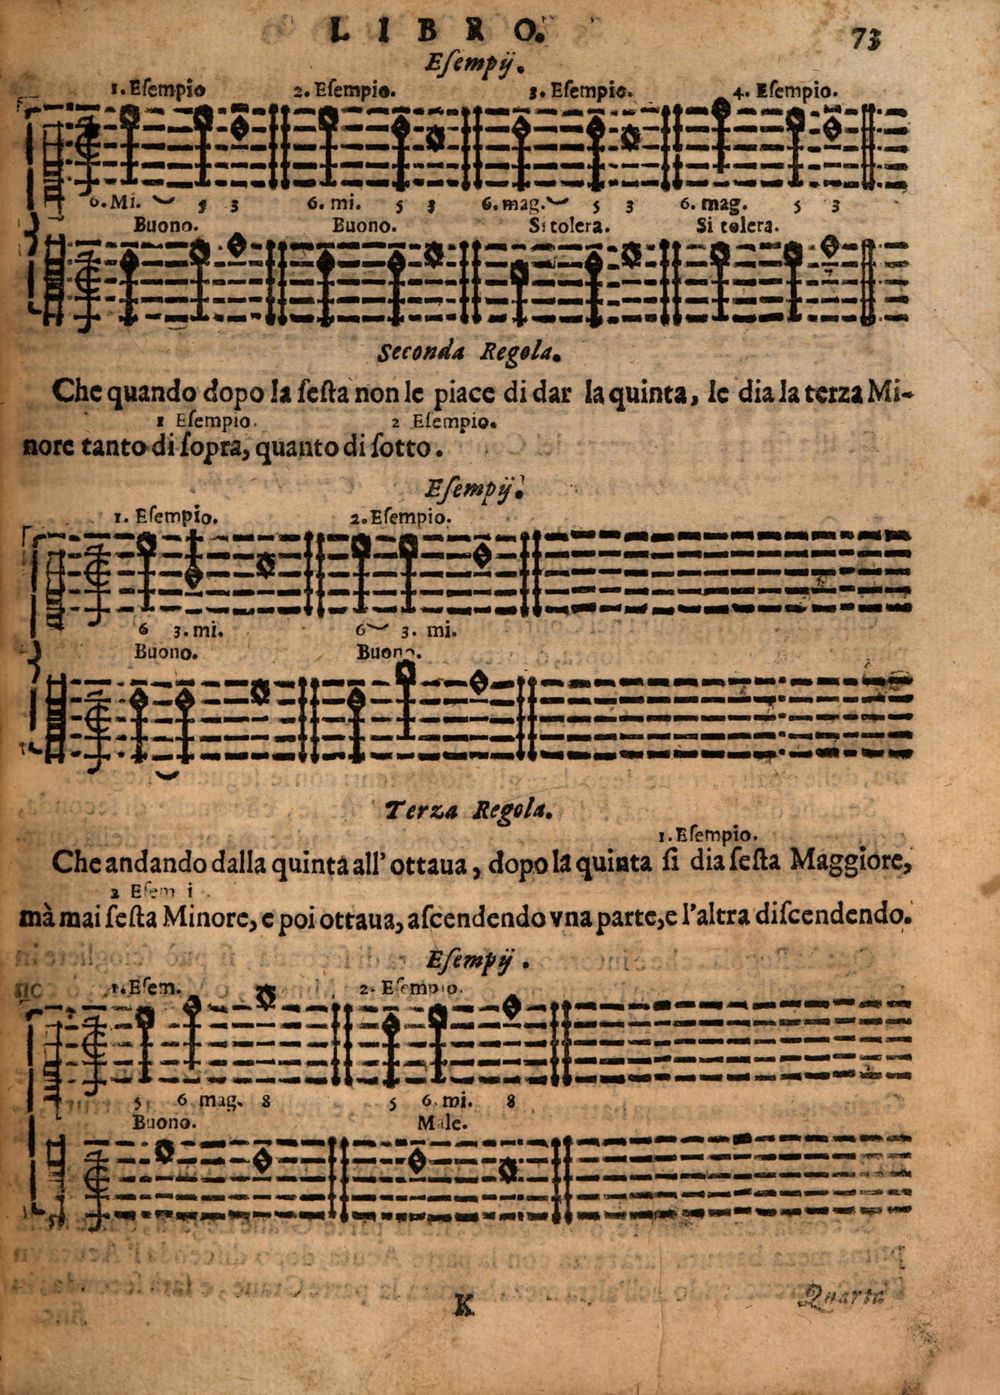 LIBRO. 73
Eſempij.
1. Eſempio 2. Eſempio. 3. Eſempio. 4. Eſempio.
6. Mi. 5 3 6. mi. 5 3 6. mag. 5 3 6. mag. 5 3
Buono. Buono. Si tolera. Si tolera.
Seconda Regola.
Che quando dopo la ſeſta non le piace di dar la quinta, le dia la terza Mi-
1 Eſempio. 2 Eſempio.
nore tanto di ſopra, quanto di ſotto.
Eſempij.
1. Eſempio. 2. Eſempio.
6 3. mi. 6 3. mi.
Buono. Buono.
Terza Regola.
1. Eſempio.
Che andando dalla quinta all' ottaua, dopo la quinta ſi dia ſeſta Maggiore,
2 Eſem i .
mà mai ſeſta Minore, e poi ottaua, aſcendendo vna parte, e l'altra diſcendendo.
Eſempij.
1. Eſem. 2. Eſempio.
5 6 mag. 8 5 6. mi. 8
Buono. Male.
K Quarta